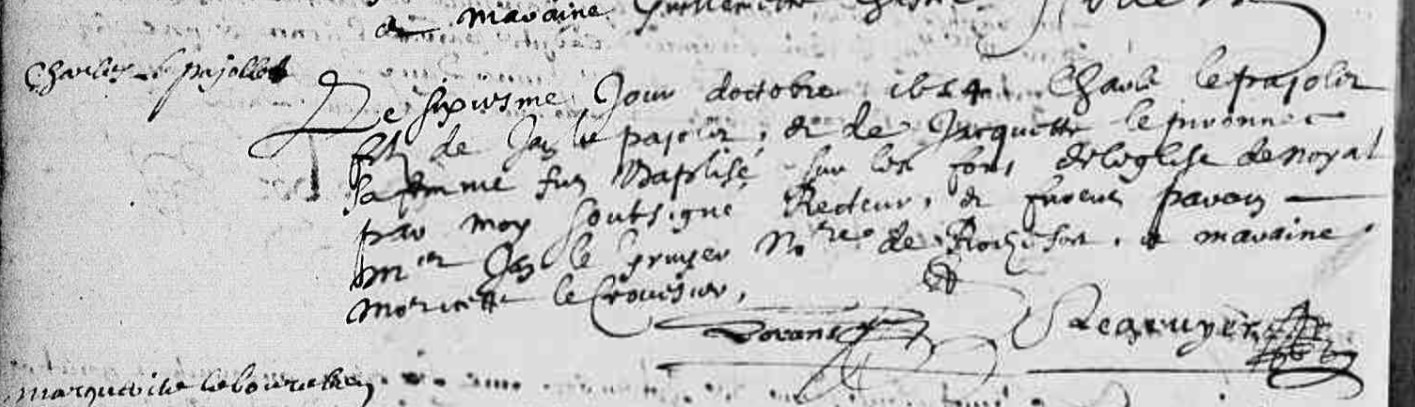 & maraine Guillemette
Charles le pajollec
Le sixiesme Jour doctobre 1644 Charle le pajolec
fils de Jan le pajolec, et de Jacquette le puronnec
sa femme fut Baptisé sur les fons de leglise de noyal
par moy soubsigné Recteur, et furent parain
mre Jan le gruyer Nore de Rochefort, et maraine
moricette le Crouesier,
Legruyer
marguerite